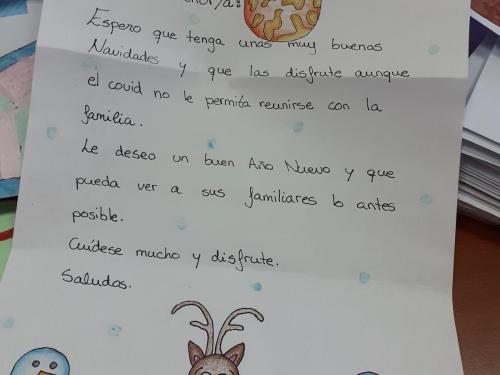 Espero que tenga unas muy buenas
Navidades y que las disfrute aunque
el covid no le permita reunirse con la
familia.
Le deseo un buen Año Nuevo y que
pueda ver a sus familiares lo antes
posible.
Cuídese mucho y disfrute.
Saludos.